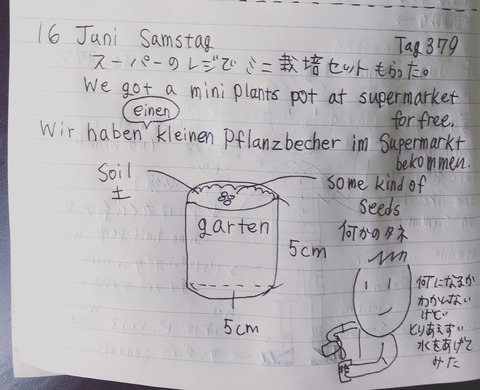 16 Juni Samstag Tag 379
スーパーのレジでミニ栽培セットもらった。
We got a mini plants pot at supermarket
for free.
einen
Wir haben kleinen Pflanzbecher im Supermarkt
bekommen.
Soil
土
some kind of
seeds
何かのタネ
garten
5cm
5cm
何になるか
わかんない
けど
とりあえず
水をあげて
みた